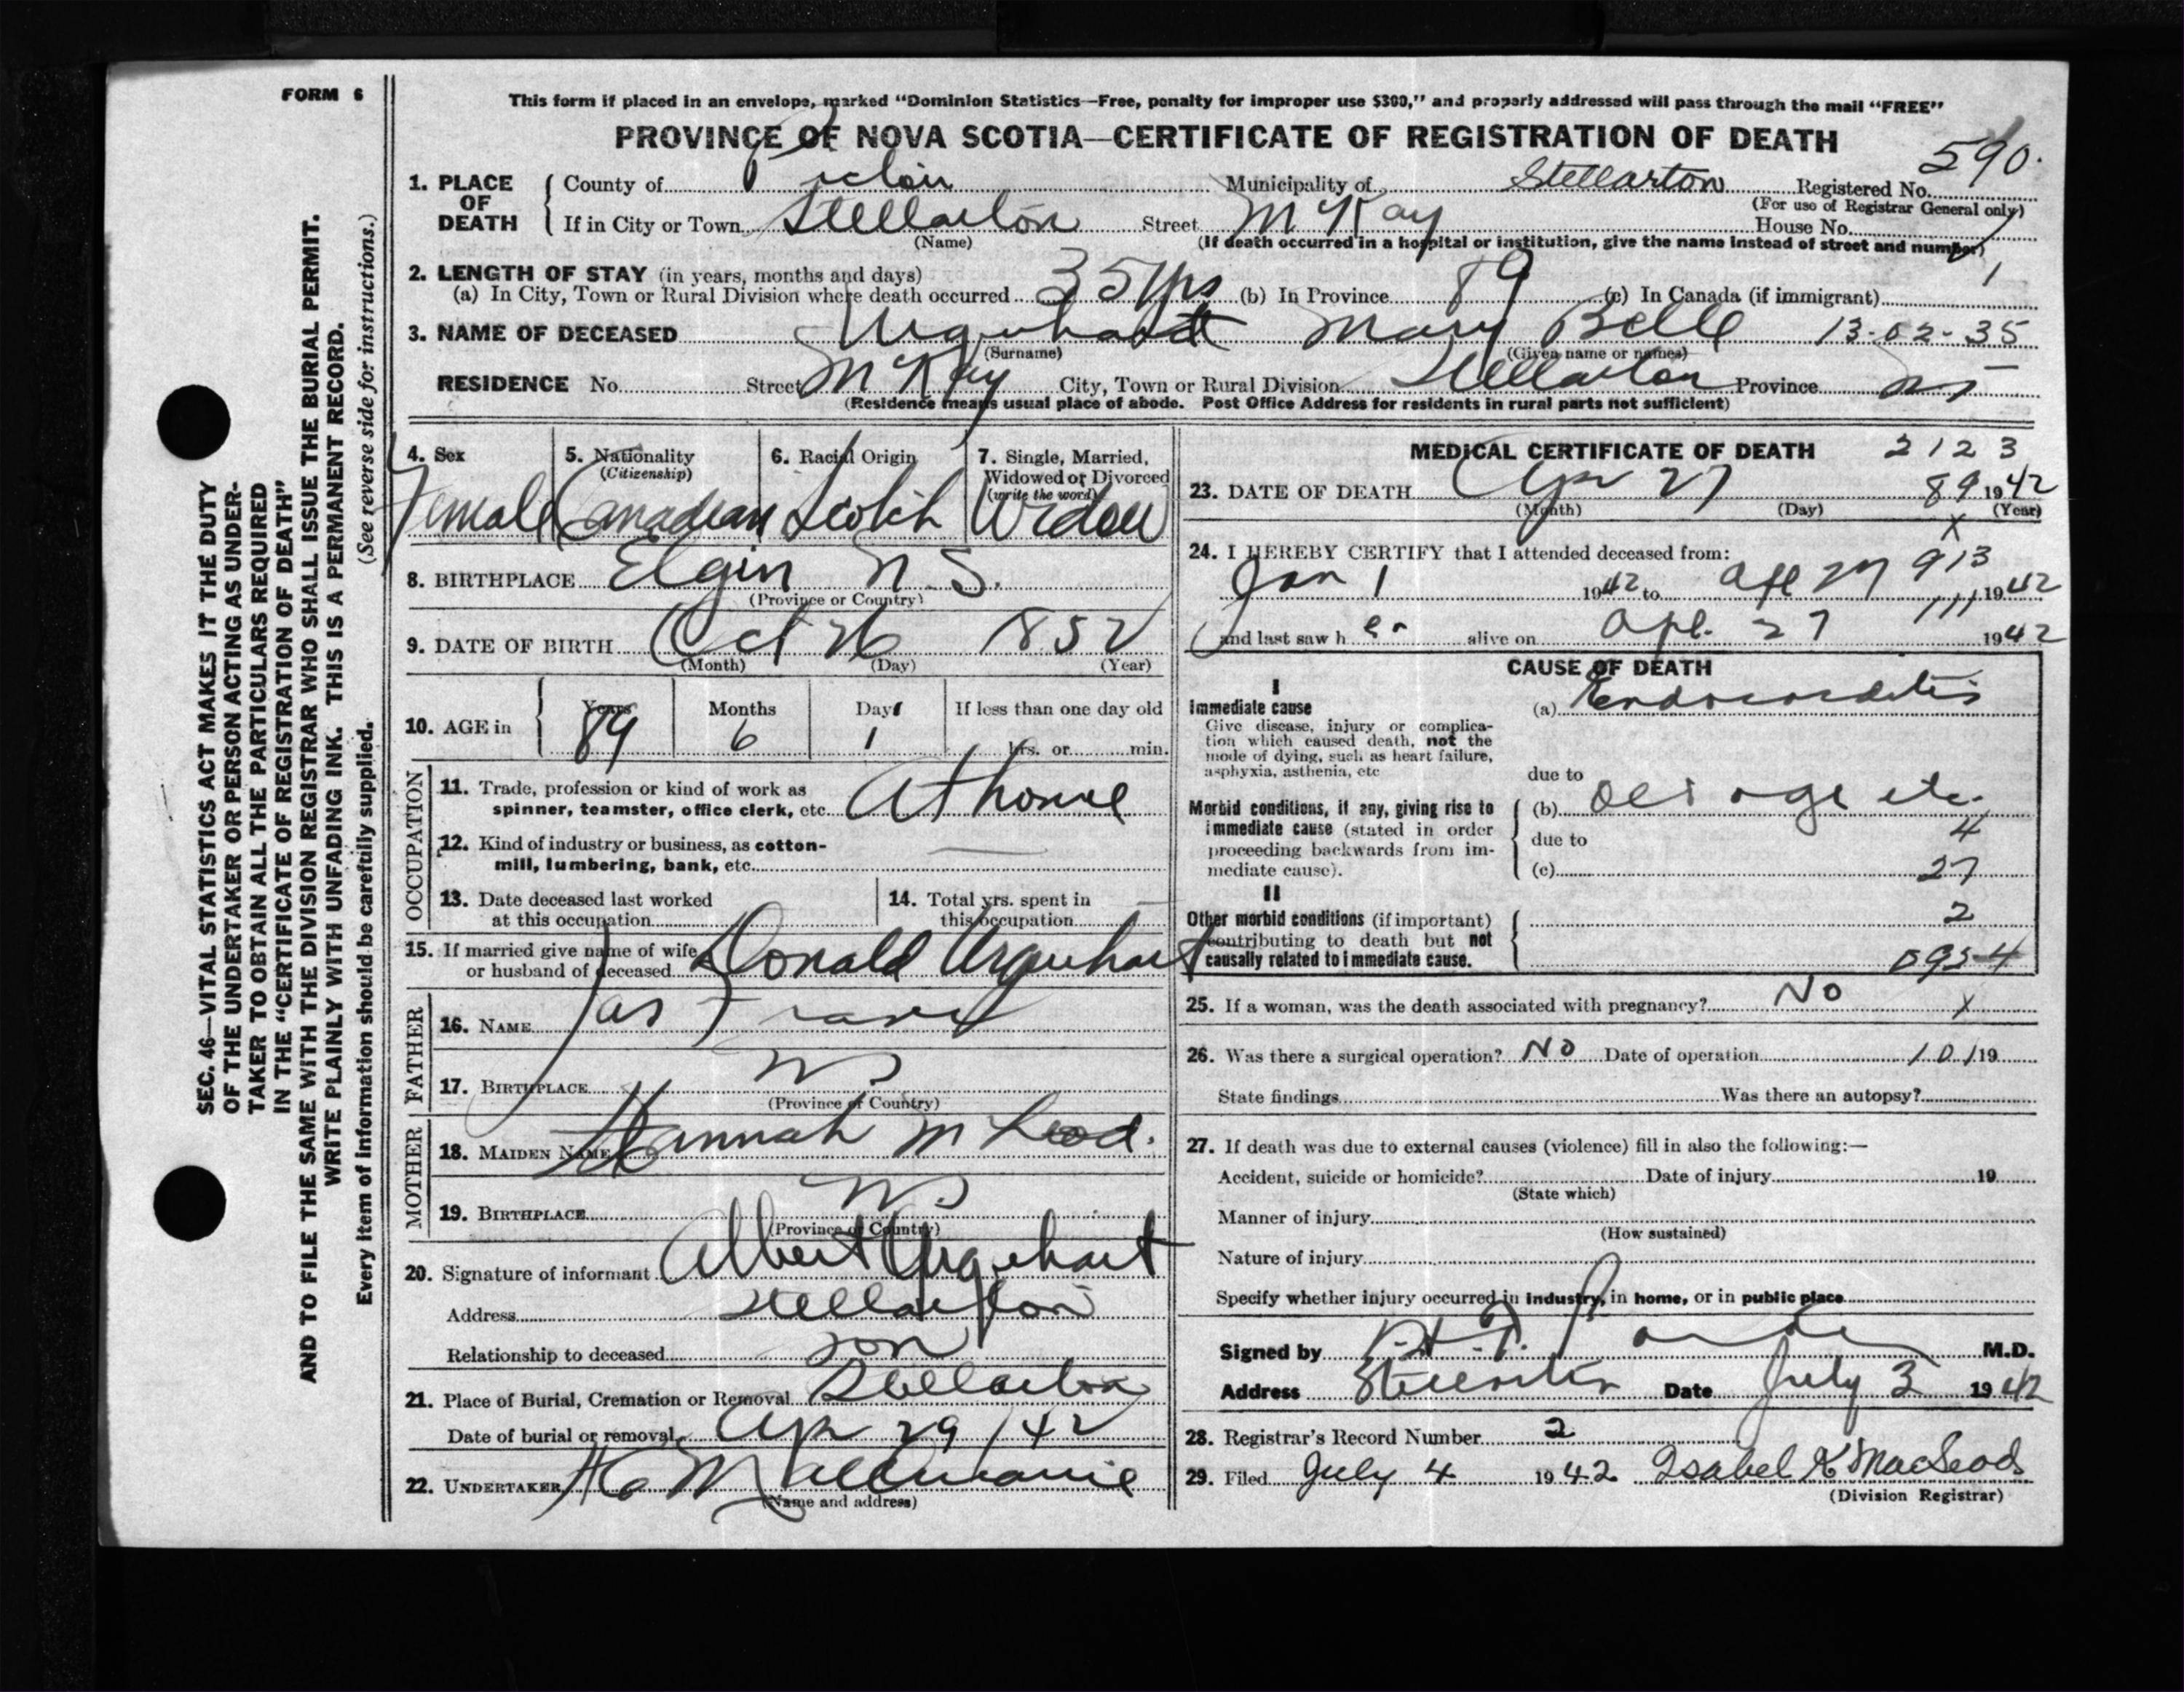 FORM 6
This form if placed in an envelope, marked "Dominion Statistics—Free, penalty for improper use $300," and properly addressed will pass through the mail "FREE"
PROVINCE OF NOVA SCOTIA—CERTIFICATE OF REGISTRATION OF DEATH
590.
1. PLACE OF DEATH
County of Pictou Municipality of Stellarton Registered No.
(For use of Registrar General only)
If in City or Town Stellarton Street McKay House No.
(Name) (If death occurred in a hospital or institution, give the name instead of street and number)
2. LENGTH OF STAY (in years, months and days)
(a) In City, Town or Rural Division where death occurred 35 yrs (b) In Province 89 (c) In Canada (if immigrant) 1
3. NAME OF DECEASED Urquhart Mary Belle 13-02-35
(Surname) (Given name or names)
RESIDENCE No. Street McKay City, Town or Rural Division Stellarton Province NS
(Residence means usual place of abode. Post Office Address for residents in rural parts not sufficient)
4. Sex Female
5. Nationality (Citizenship) Canadian
6. Racial Origin Scotch
7. Single, Married, Widowed or Divorced (write the word) Widow
8. BIRTHPLACE Elgin N.S.
(Province or Country)
9. DATE OF BIRTH Oct 26 1852
(Month) (Day) (Year)
10. AGE in Years 89 Months 6 Days 1 If less than one day old
hrs. or min.
OCCUPATION
11. Trade, profession or kind of work as
spinner, teamster, office clerk, etc. At home
12. Kind of industry or business, as cotton-
mill, lumbering, bank, etc.
13. Date deceased last worked
at this occupation
14. Total yrs. spent in
this occupation
15. If married give name of wife
or husband of deceased Donald Urquhart
FATHER
16. NAME Jas
17. BIRTHPLACE NS
(Province or Country)
MOTHER
18. MAIDEN NAME Hannah McLeod.
19. BIRTHPLACE NS
(Province or Country)
20. Signature of informant Albert Urquhart
Address Stellarton
Relationship to deceased son
21. Place of Burial, Cremation or Removal Stellarton
Date of burial or removal Apr 29/42
22. UNDERTAKER
(Name and address)
MEDICAL CERTIFICATE OF DEATH 2123
23. DATE OF DEATH Apr 27 89 1942
(Month) (Day) (Year)
X
24. I HEREBY CERTIFY that I attended deceased from:
913
Jan 1 1942 to Apl 27 1942
111
and last saw her alive on Apl. 27 1942
CAUSE OF DEATH
I
Immediate cause (a) Endocarditis
Give disease, injury or complica-
tion which caused death, not the
mode of dying, such as heart failure,
asphyxia, asthenia, etc
due to
Morbid conditions, if any, giving rise to (b) Old age etc.
immediate cause (stated in order 4
proceeding backwards from im- due to
mediate cause). (c) 27
II
Other morbid conditions (if important) 2
contributing to death but not
causally related to immediate cause. 0954
25. If a woman, was the death associated with pregnancy? No X
26. Was there a surgical operation? No Date of operation 101 19
State findings Was there an autopsy?
27. If death was due to external causes (violence) fill in also the following:—
Accident, suicide or homicide? Date of injury 19
(State which)
Manner of injury
(How sustained)
Nature of injury
Specify whether injury occurred in industry, in home, or in public place
Signed by M.D.
Address Stellarton Date July 3 1942
28. Registrar's Record Number 2
29. Filed July 4 1942 Isabel K MacLeod
(Division Registrar)
SEC. 46—VITAL STATISTICS ACT MAKES IT THE DUTY
OF THE UNDERTAKER OR PERSON ACTING AS UNDER-
TAKER TO OBTAIN ALL THE PARTICULARS REQUIRED
IN THE "CERTIFICATE OF REGISTRATION OF DEATH"
AND TO FILE THE SAME WITH THE DIVISION REGISTRAR WHO SHALL ISSUE THE BURIAL PERMIT.
WRITE PLAINLY WITH UNFADING INK. THIS IS A PERMANENT RECORD.
Every item of information should be carefully supplied. (See reverse side for instructions.)